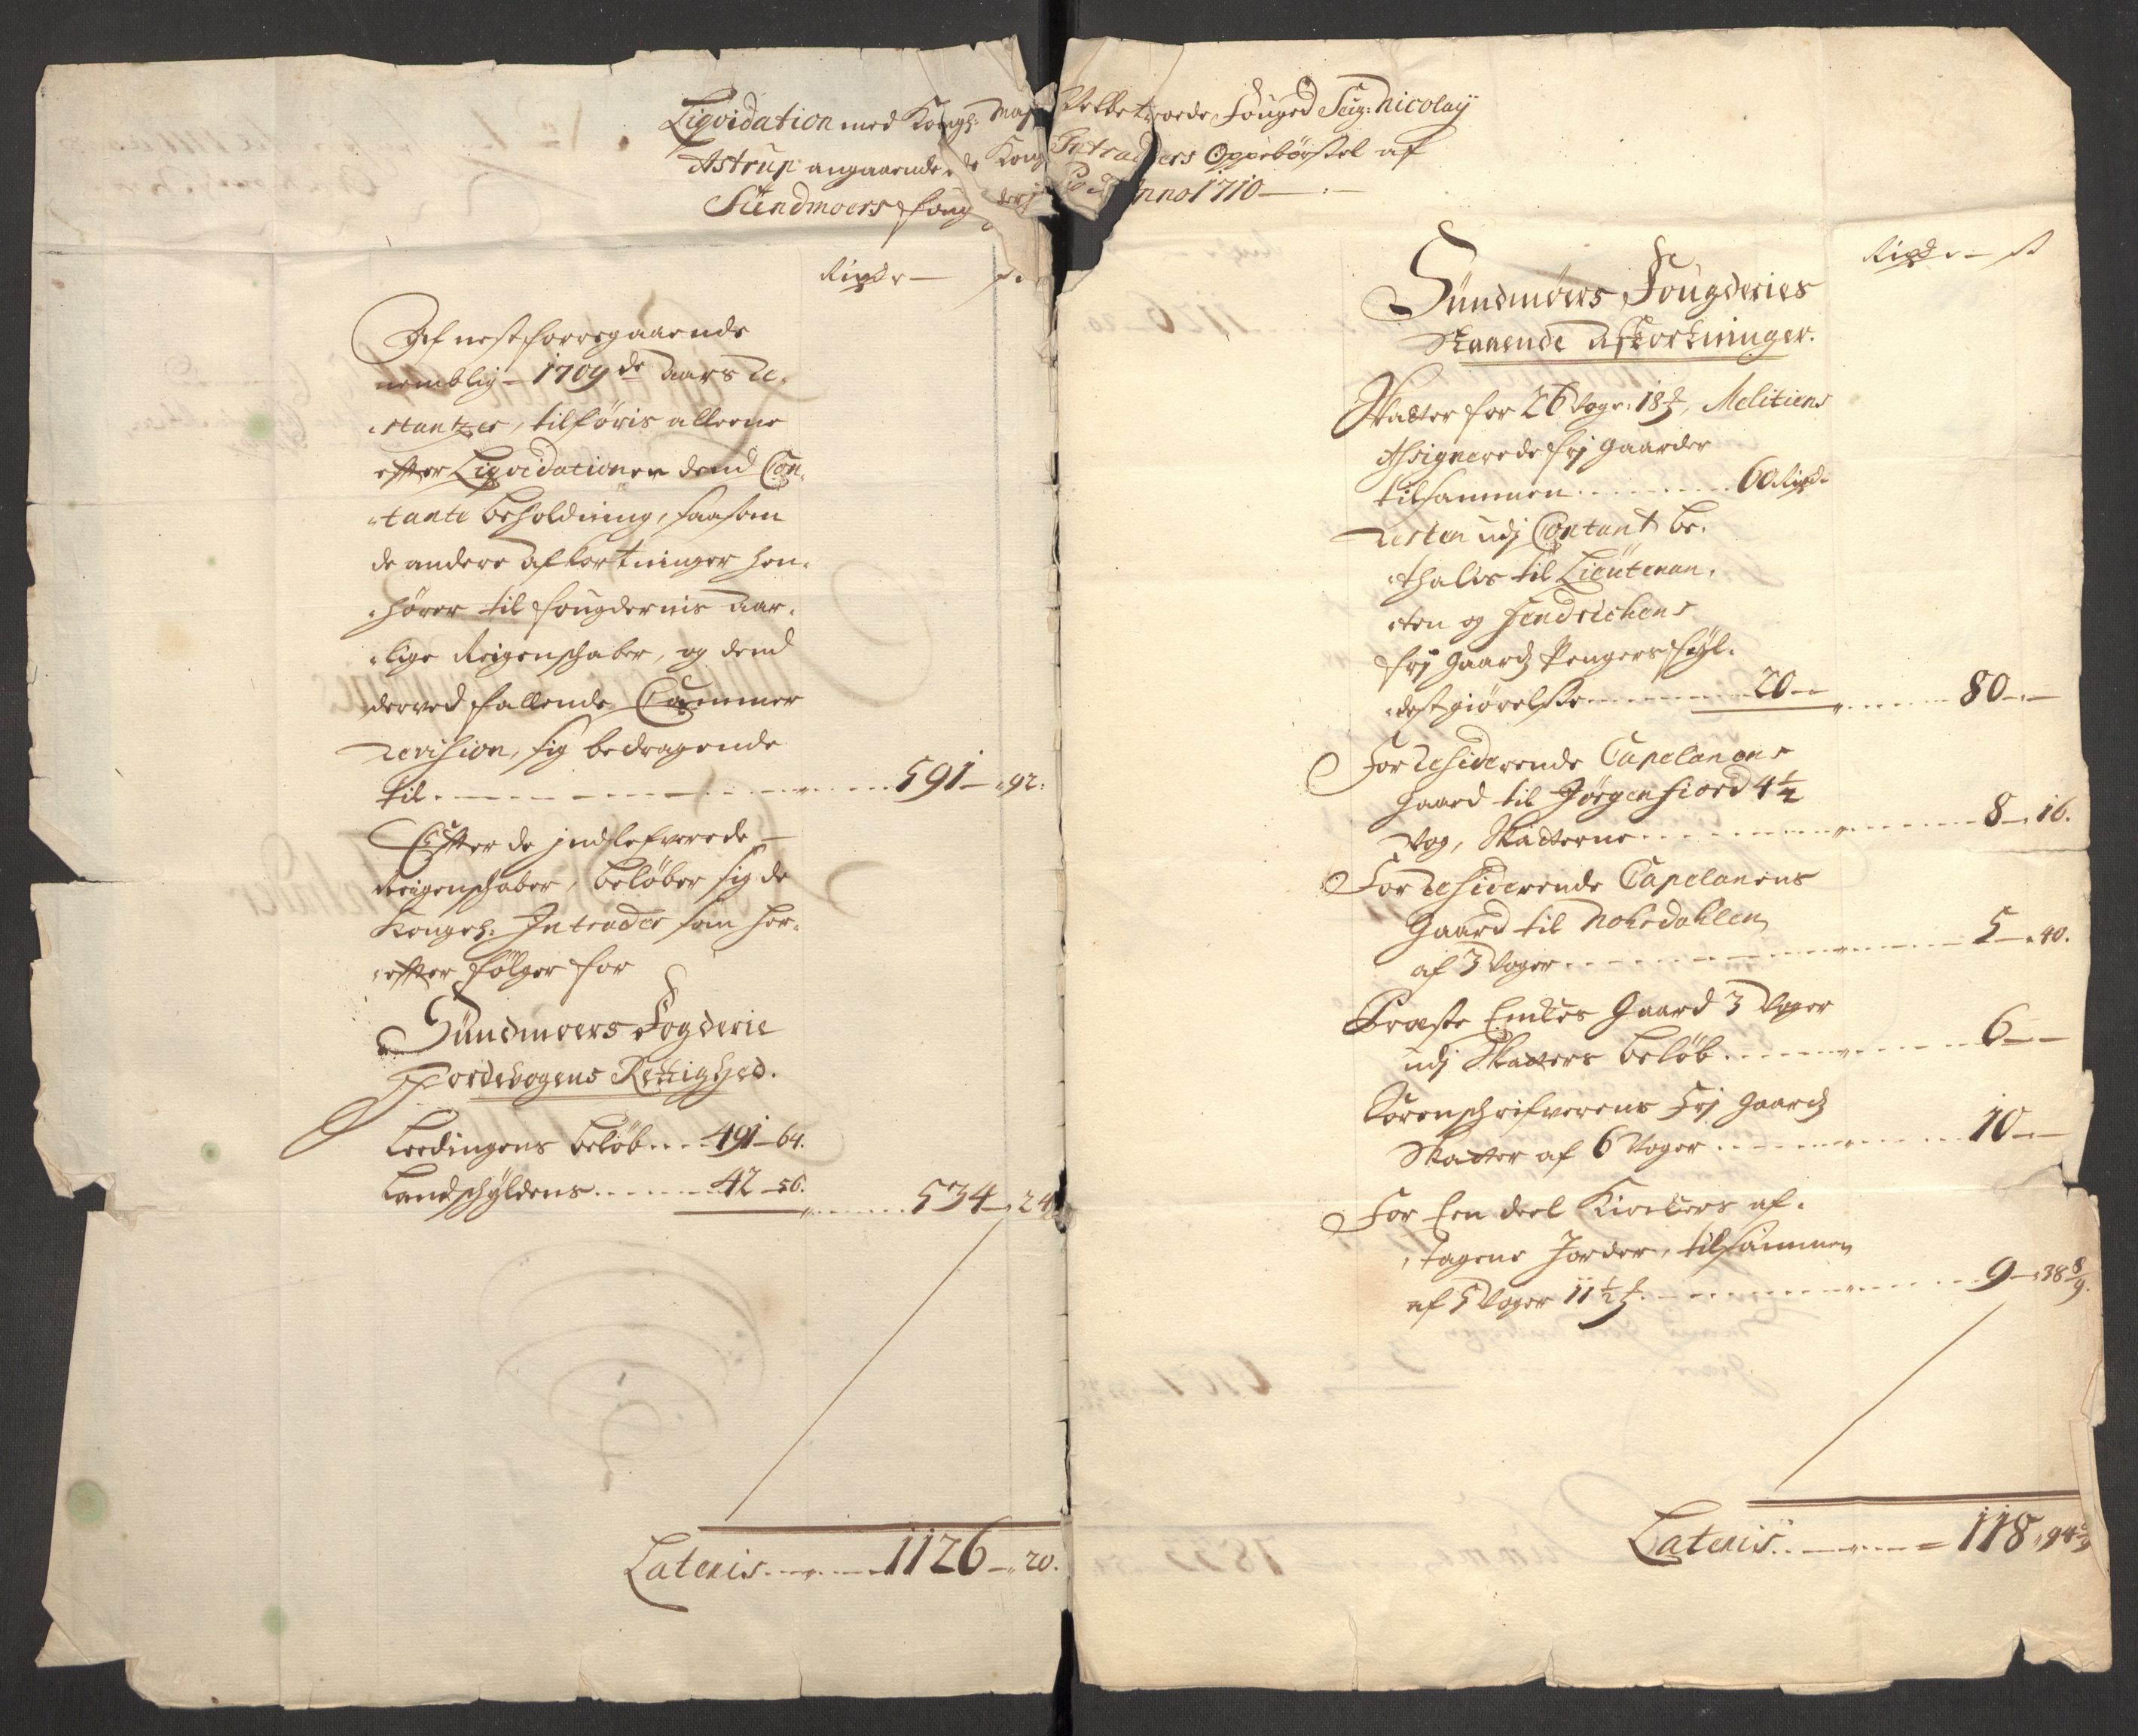 Liqvidation med Kongl: May Velbetroede Fouged Seig: Nicolaÿ
Astrup angaaende de Kong Intraders Oppebörstel af
Sündmoers foug derj Pro Anno 1710
Rixdr — s.
Af nest forregaaende
nemblig 1709de Aars Re-
stantzer, tilföris alleene
efter Liqvidationen dend Con-
tante beholdning, saasom
de andere afkortninger hen-
hörer til fougderiis aar-
lige Reigenschaber, og dend
derved fallende Cammer
Revision, sig bedragende
til 591 — 92:
Effter de indlefverede
Reigenschaber, belöber sig de
Kongel: Intrader som her-
effter fölger for
Sündmoers Fogderie
Jordebogens Rettighed.
Leedingens belöb 491 – 64.
Landschÿldens 42 – 56. 534 — 24
Lateris 1126 — 20.
Rixdr — s
Sündmöers Fougderies
Staaende Afkortninger.
Skatter for 26 Voger 18 , Melitiens
Assignerede frj Gaarder
tilsammen 60 Rixd.
Resten udj Contant be-
thalis til Lieutenan-
ten og Fendrichens
frj Gaards Pengers fÿl-
destgiörelsse 20 — 80 —
For Residerende Capelanens
Gaard til Jörgenfiord 4½
Vog, Skatterne 8 — 16.
For Residerende Capelanens
Gaard til Nohrdahlen
af 3 Voger 5 — 40.
Præste Enckes Gaard 3 Voger
udj Skatters belöb 6 —
Sorenschrifverens Frj Gaards
Skatter af 6 Voger 10 —
For Een deel Kirckers af-
tagene Jorder, tilsammen
af 5 Voger 11½ 9 — 38 8/9.
Lateris 118 94 8/9